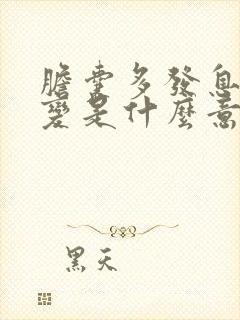 膽囊多發息
變是什麼意
黑天